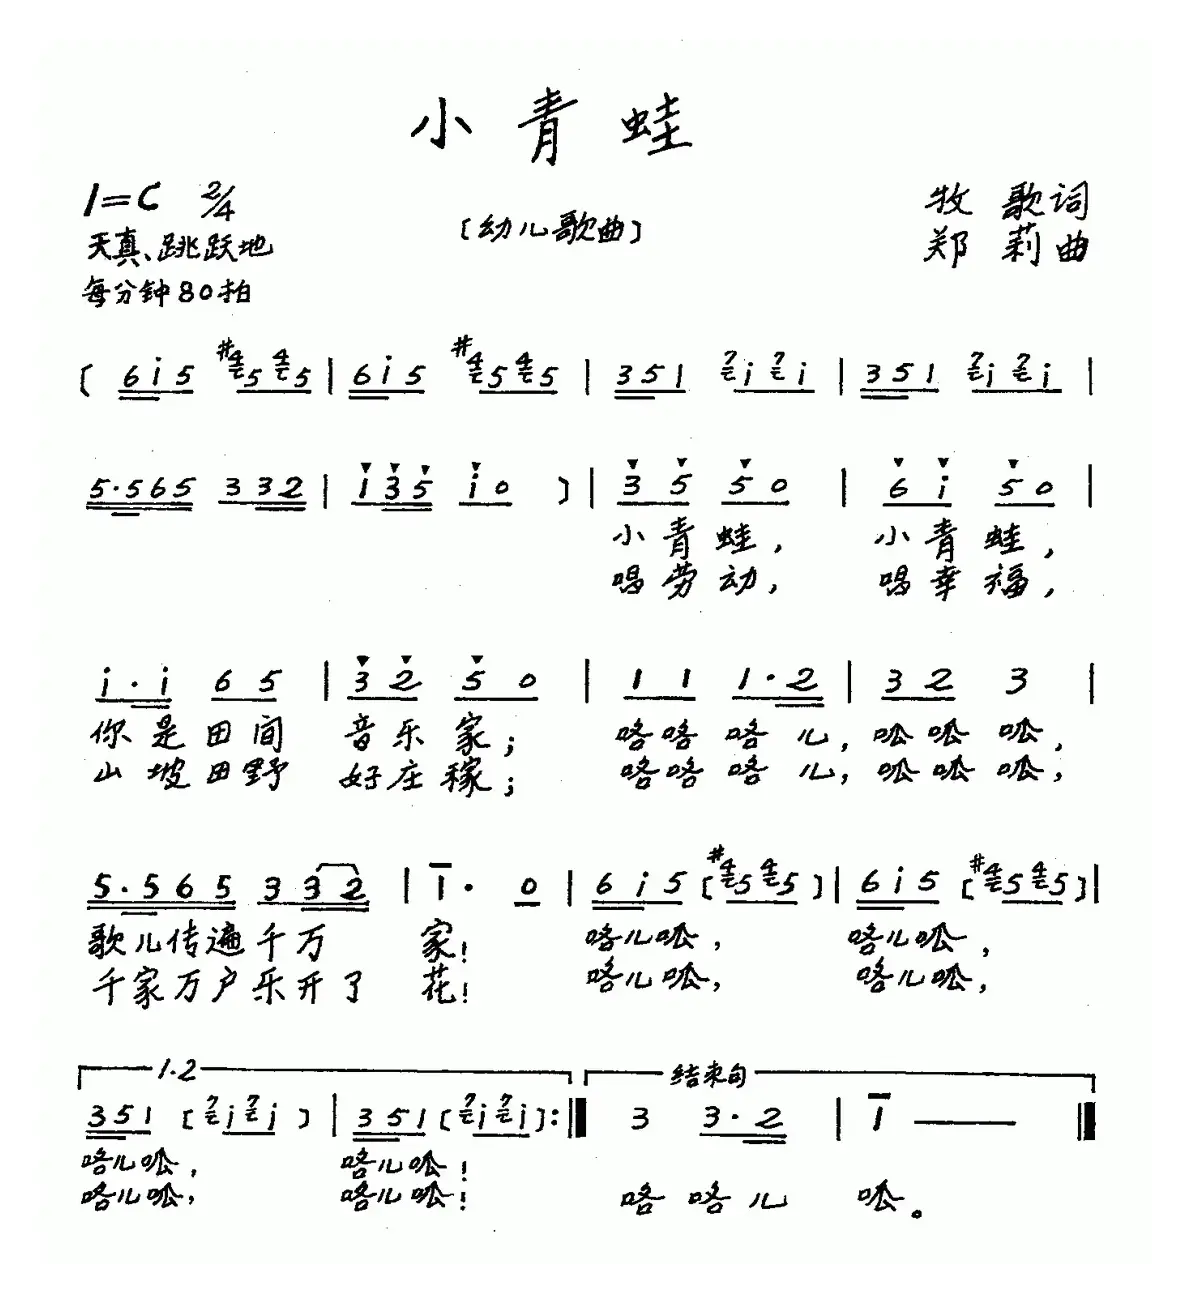 小青蛙
1=C 2/4
〔幼儿歌曲〕
牧 歌词
郑 莉曲
天真、跳跃地
每分钟80拍
〔 6i5 #4 5 4 5 | 6i5 #4 5 4 5 | 351 7 i 7 i | 351 7 i 7 i |
5·565 332 | i35 i0 〕| 3 5 5 0 | 6 i 5 0 |
小青蛙, 小青蛙,
唱劳动, 唱幸福,
i·i 6 5 | 3 2 5 0 | 1 1 1·2 | 3 2 3 |
你是田间 音乐家; 咯咯咯儿,呱呱呱,
山坡田野 好庄稼; 咯咯咯儿,呱呱呱,
5·565 332 | 1· 0 | 6i5〔#4 5 4 5〕| 6i5〔#4 5 4 5〕|
歌儿传遍千万 家! 咯儿呱, 咯儿呱,
千家万户乐开了 花! 咯儿呱, 咯儿呱,
1.2 结束句
351〔7 i 7 i〕| 351〔7 i 7 i〕:‖ 3 3·2 | 1 — ‖
咯儿呱, 咯儿呱!
咯儿呱, 咯儿呱! 咯咯儿 呱。